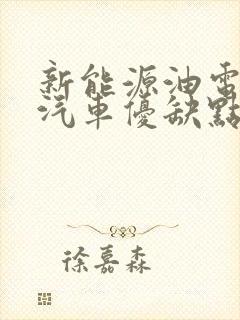 新能源油電
汽車優缺點
徐嘉森